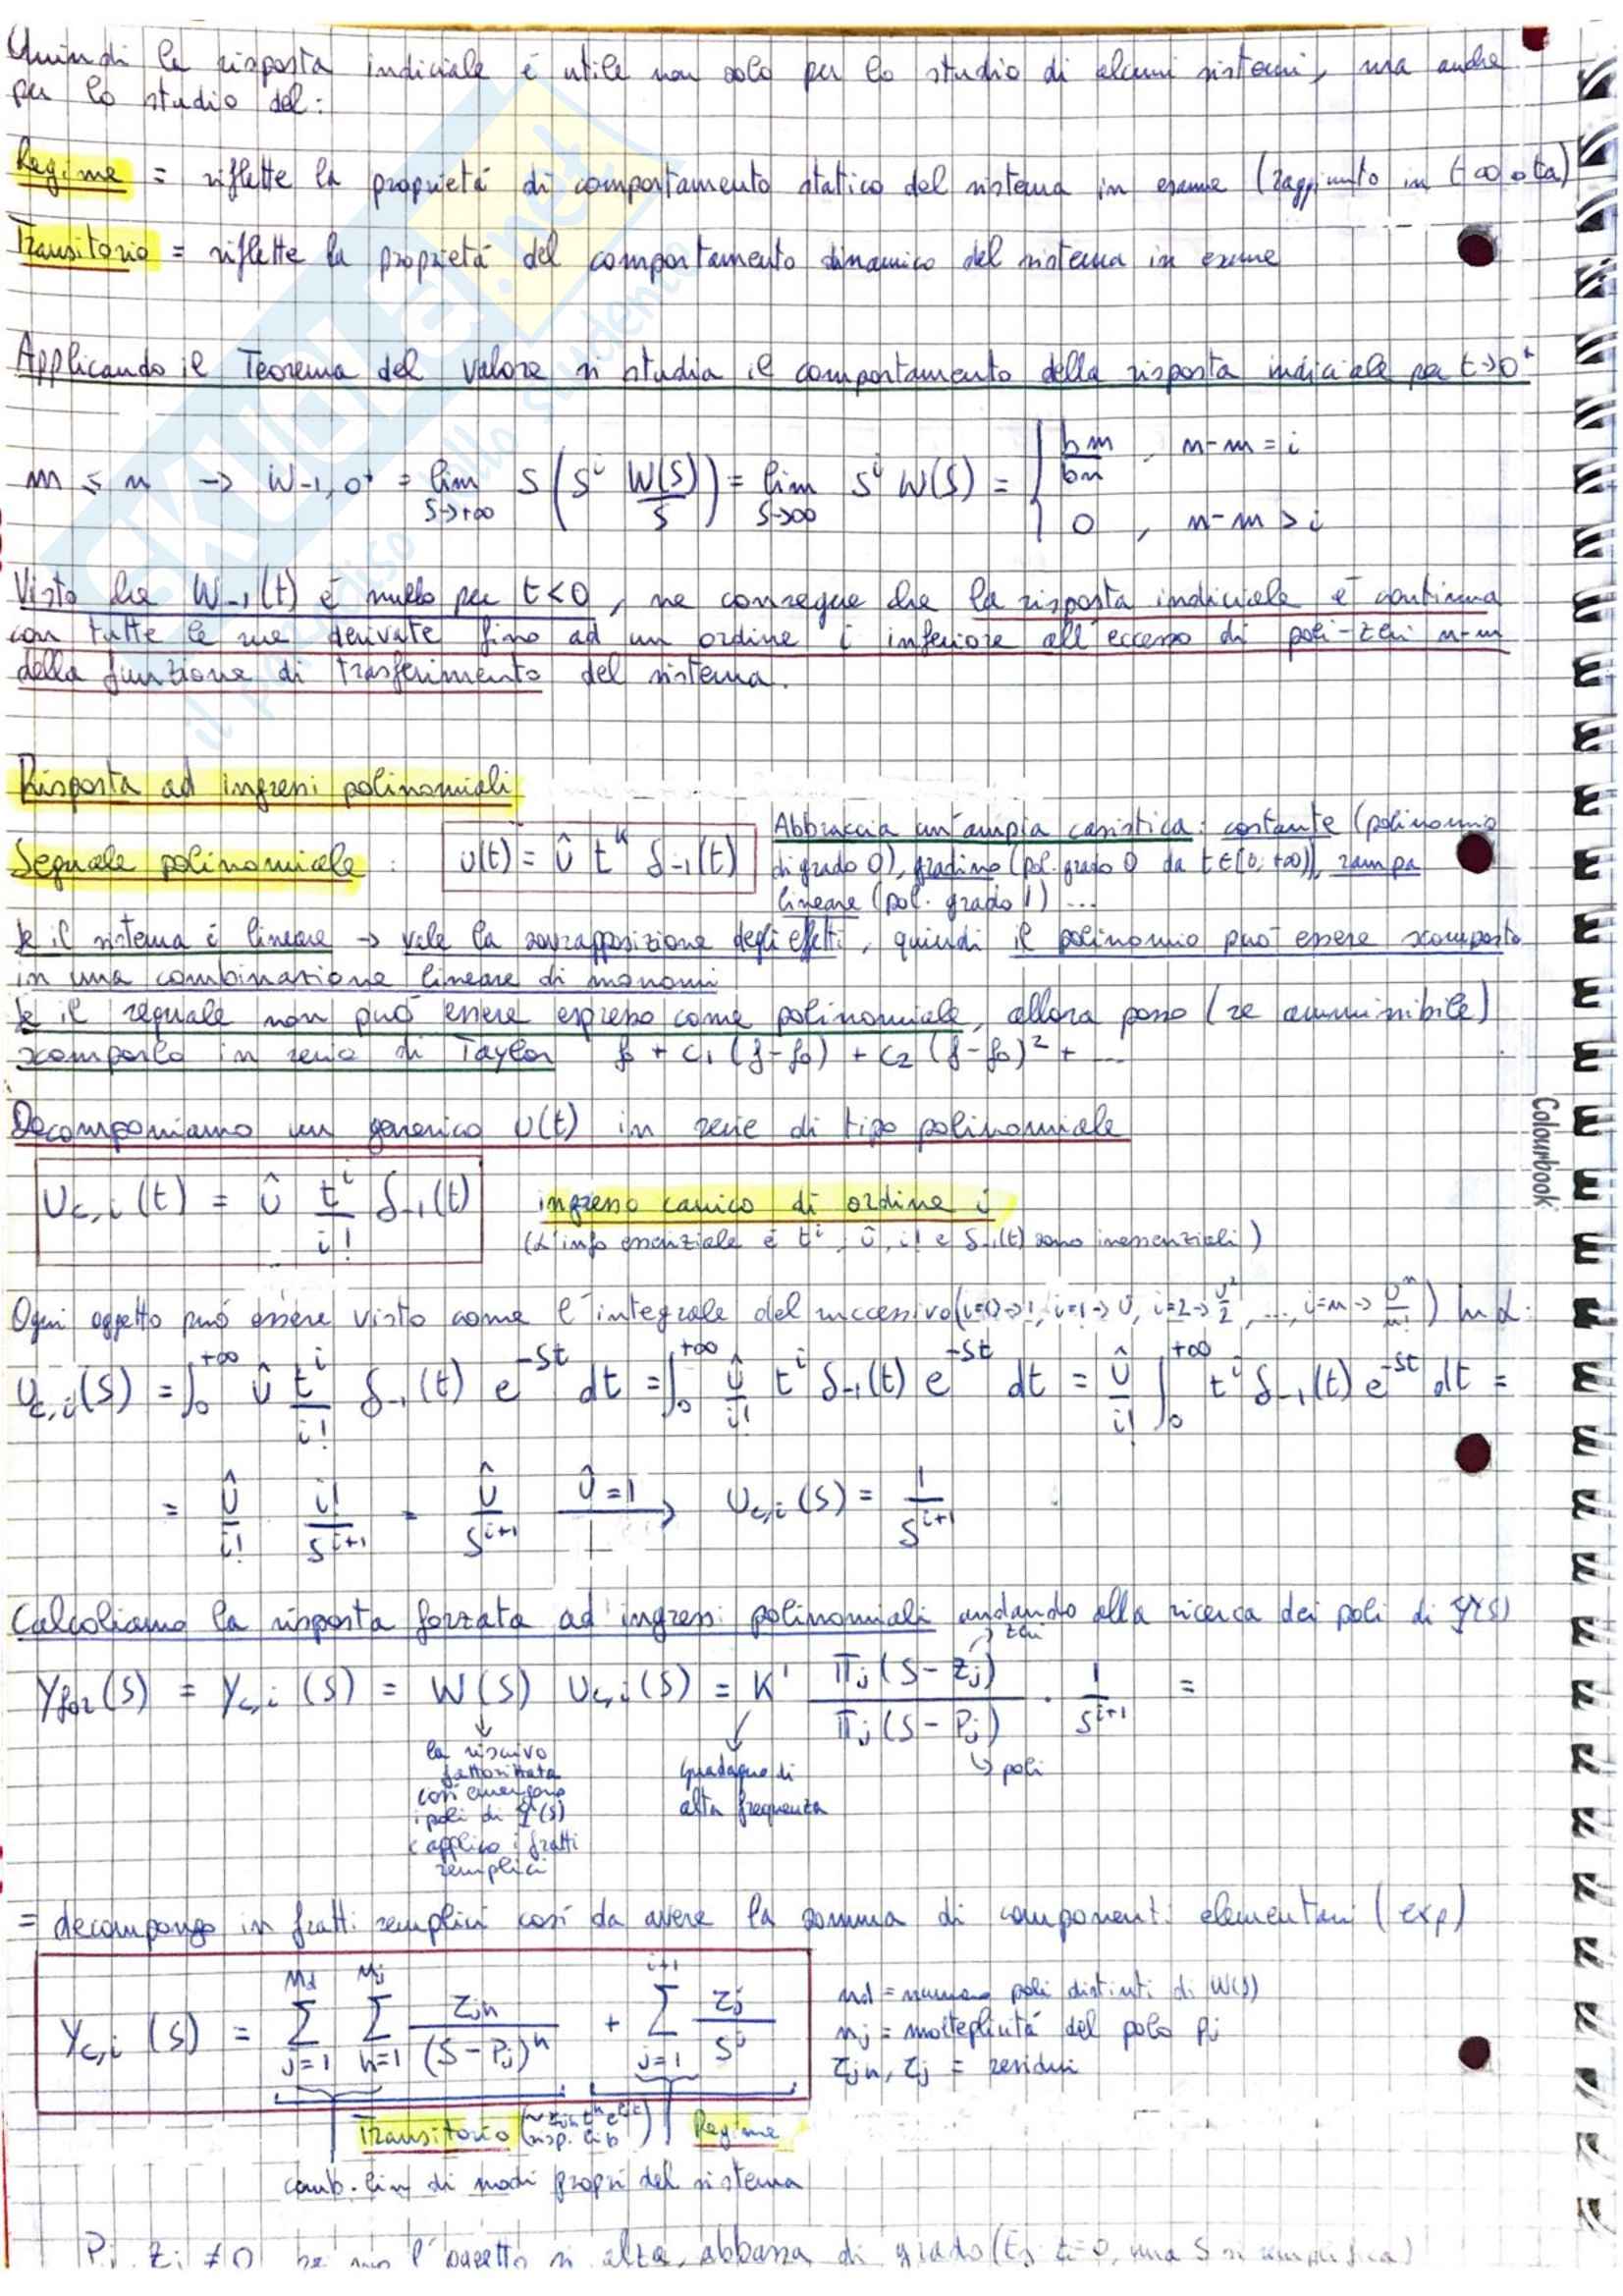 Quindi la risposta indiciale è utile non solo per lo studio di alcuni sistemi, ma anche
per lo studio del:
Regime = riflette la proprietà di comportamento statico del sistema in esame (raggiunto in t∞ o ta)
Transitorio = riflette la proprietà del comportamento dinamico del sistema in esame
Applicando il Teorema del valore si studia il comportamento della risposta indiciale per t→0⁺
m ≤ n → W-1,0⁺ = lim s→+∞ S (Sⁱ W(S)/S) = lim S→∞ Sⁱ W(S) = { bm/bn , n-m = i
0 , n-m > i
Visto che W-1(t) è nullo per t<0, ne consegue che la risposta indiciale è continua
con tutte le sue derivate fino ad un ordine i inferiore all'eccesso di poli-zeri n-m
della funzione di trasferimento del sistema.
Risposta ad ingressi polinomiali
Segnale polinomiale : U(t) = Û tᴷ δ-1(t)
Abbraccia un'ampia casistica: costante (polinomio
di grado 0), gradino (pol. grado 0 da t∈[0; +∞)), rampa
lineare (pol. grado 1) ...
Se il sistema è lineare → vale la sovrapposizione degli effetti, quindi il polinomio può essere scomposto
in una combinazione lineare di monomi
Se il segnale non può essere espresso come polinomiale, allora posso (se ammissibile)
scomporlo in serie di Taylor f₀ + C₁ (f-f₀) + C₂ (f-f₀)² + ...
Decomponiamo un generico U(t) in serie di tipo polinomiale
Uc,i (t) = Û tⁱ/i! δ-1(t) ingresso canico di ordine i
(L'info essenziale è tⁱ, Û, i! e δ-1(t) sono inessenziali)
Ogni oggetto può essere visto come l'integrale del successivo (i=0→1, i=1→U, i=2→U²/2, ..., i=n→Uⁿ/n!) In L:
Uc,i(S) = ∫₀^+∞ Û tⁱ/i! δ-1(t) e^-St dt = ∫₀^+∞ Û/i! tⁱ δ-1(t) e^-St dt = Û/i! ∫₀^+∞ tⁱ δ-1(t) e^-St dt =
= Û/i! i!/S^i+1 = Û/S^i+1 Û=1 → Uc,i (S) = 1/S^i+1
Calcoliamo la risposta forzata ad ingressi polinomiali andando alla ricerca dei poli di Y(S)
zeri
Yfor(S) = Yc,i (S) = W(S) Uc,i(S) = K' Πj(S-Zj)/Πj(S-Pj) · 1/S^i+1 =
poli
la riscrivo
fattorizzata
così emergono
i poli di Y(S)
e applico i fratti
semplici
Guadagno di
alta frequenza
= decompongo in fratti semplici così da avere la somma di componenti elementari (exp)
Yc,i (S) = Σ j=1 nd Σ h=1 nj rjh/(S-Pj)ʰ + Σ j=1 i+1 rj/Sʲ
nd = numero poli distinti di W(S)
nj = molteplicità del polo Pj
rjh, rj = residui
Transitorio
risp. lib
Regime
comb. lin di modi propri del sistema
Colourbook
SKUOLA.net
il paradiso dello studente